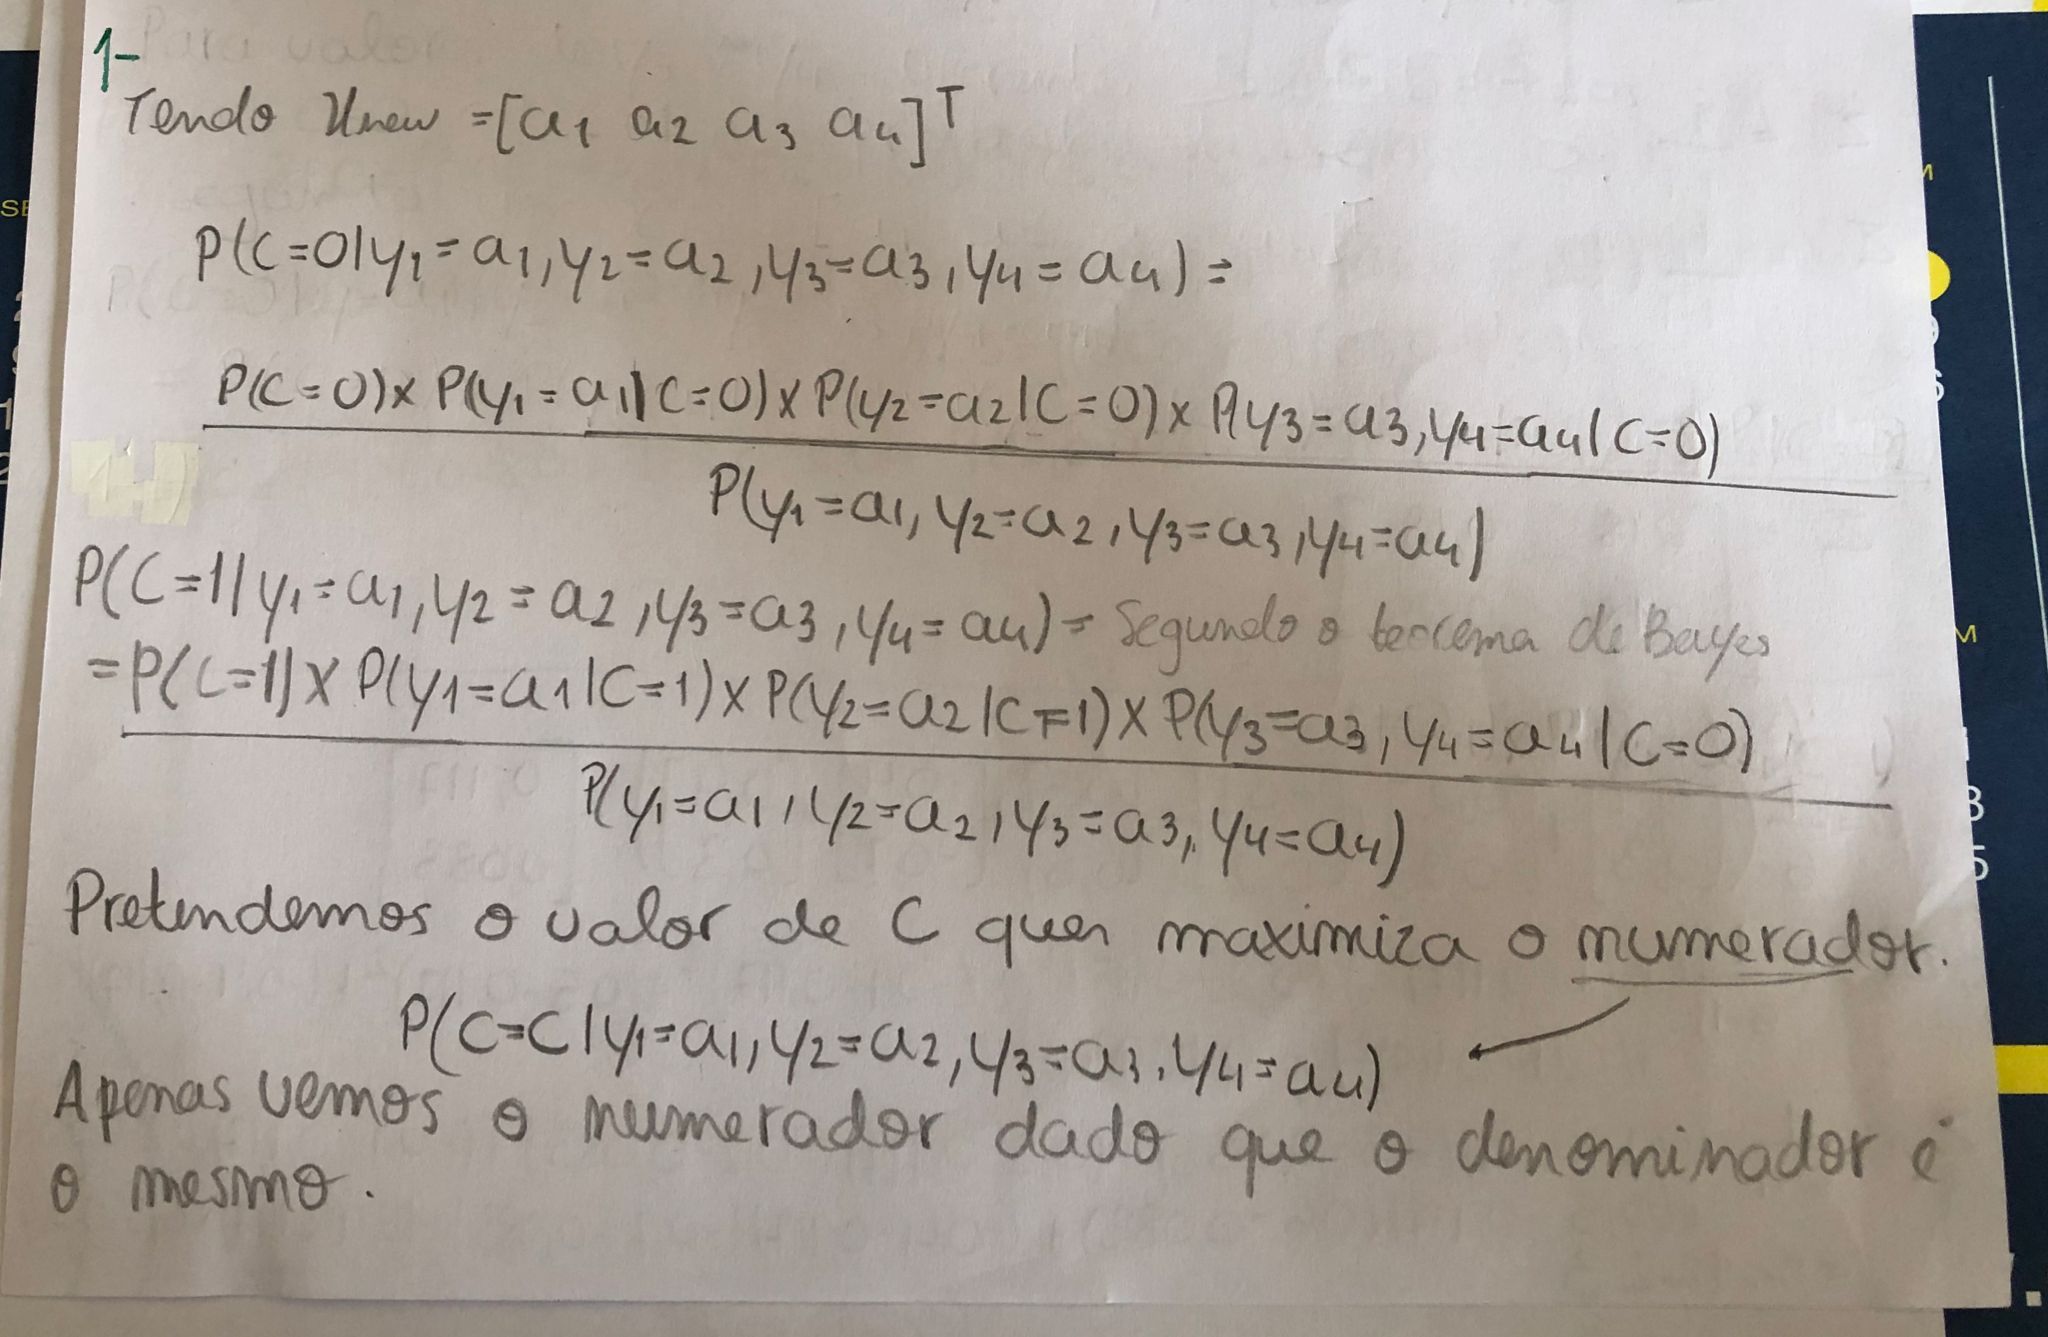 1-
Tendo xnew = [a1 a2 a3 a4]T
P(C=0|y1=a1,y2=a2,y3=a3,y4=a4)=
P(C=0)×P(y1=a1|C=0)×P(y2=a2|C=0)×P(y3=a3,y4=a4|C=0)
P(y1=a1,y2=a2,y3=a3,y4=a4)
P(C=1|y1=a1,y2=a2,y3=a3,y4=a4)= Segundo o teorema de Bayes
=P(C=1)×P(y1=a1|C=1)×P(y2=a2|C=1)×P(y3=a3,y4=a4|C=0)
P(y1=a1,y2=a2,y3=a3,y4=a4)
Pretendemos o valor de C que maximiza o numerador.
P(C=C|y1=a1,y2=a2,y3=a3,y4=a4)
Apenas vemos o numerador dado que o denominador é
o mesmo.